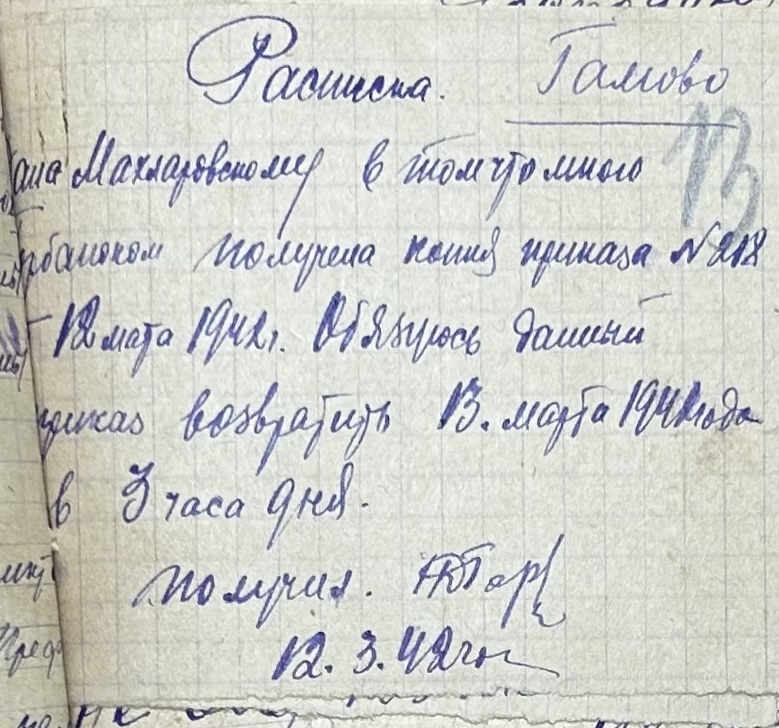 Расписка. Гамово
13
дана Махларовскому в том что мною
получена копия приказа № 218
12 марта 1942 г. Обязуюсь данный
приказ возвратить 13. марта 1942 года
в 3 часа дня.
получил.
12. 3. 42 г.